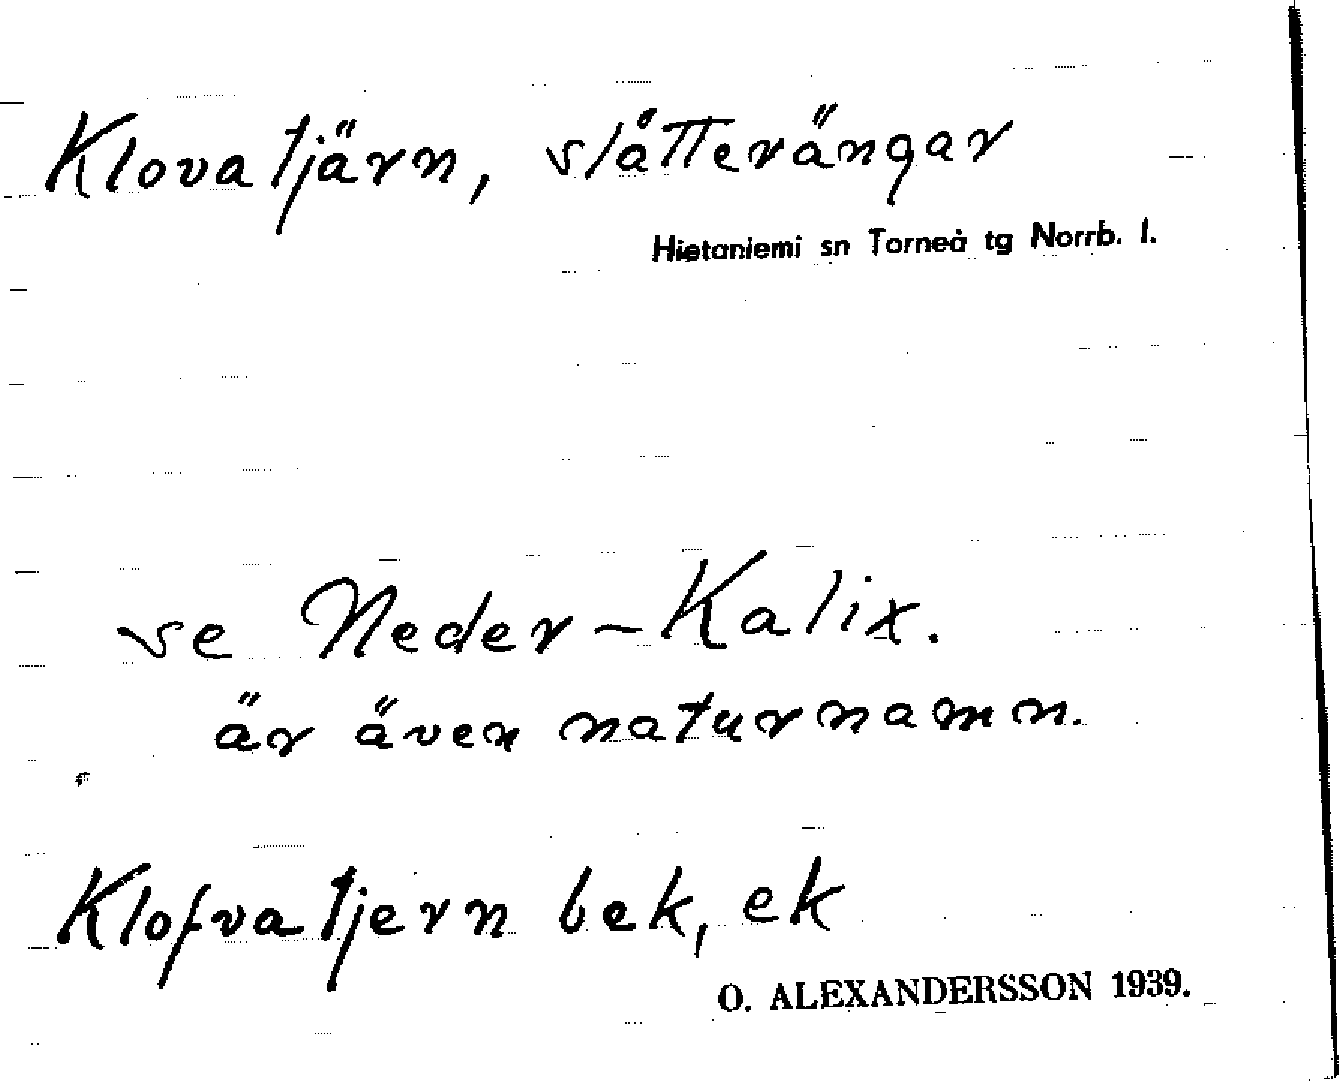 Klovatjärn, slåtterängar
Hietaniemi sn Torneå tg Norrb. l.
se Neder-Kalix.
är även naturnamn.
Klofvatjern bek, ek
O. ALEXANDERSSON 1939.